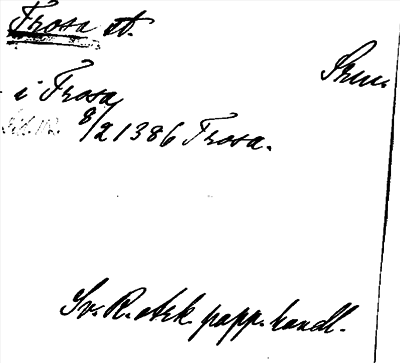 Trosa st.
Skm.
i Trosa
8/2 1386 Trosa.
Sv. R. ark. papp. handl.